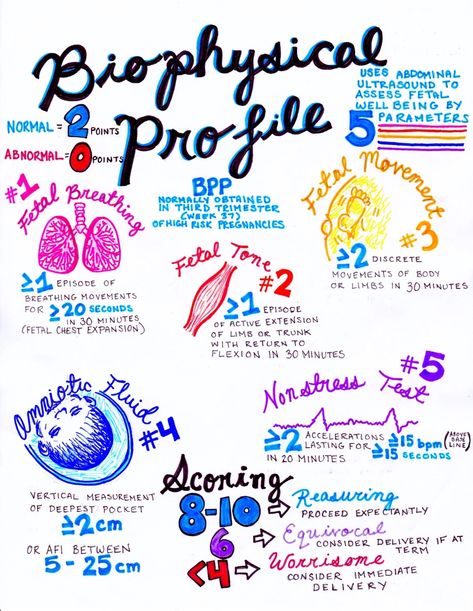 Biophysical
Profile
NORMAL = 2 POINTS
ABNORMAL = 0 POINTS
USES ABDOMINAL
ULTRASOUND TO
ASSESS FETAL
WELL BEING BY
5 PARAMETERS
BPP
NORMALLY OBTAINED
IN THIRD TRIMESTER
(WEEK 37)
OF HIGH RISK PREGNANCIES
#1
Fetal Breathing
≥1 EPISODE OF
BREATHING MOVEMENTS
FOR ≥20 SECONDS
IN 30 MINUTES
(FETAL CHEST EXPANSION)
Fetal Tone
#2
≥1 EPISODE
OF ACTIVE EXTENSION
OF LIMB OR TRUNK
WITH RETURN TO
FLEXION IN 30 MINUTES
Fetal Movement
#3
≥2 DISCRETE
MOVEMENTS OF BODY
OR LIMBS IN 30 MINUTES
Amniotic Fluid
#4
VERTICAL MEASUREMENT
OF DEEPEST POCKET
≥2cm
OR AFI BETWEEN
5-25cm
#5
Nonstress Test
≥2 ACCELERATIONS ≥15 bpm (ABOVE BASE LINE)
LASTING FOR ≥15 SECONDS
IN 20 MINUTES
Scoring
8-10 ⇨ Reasuring
PROCEED EXPECTANTLY
6 ⇨ Equivocal
CONSIDER DELIVERY IF AT
TERM
<4 ⇨ Worrisome
CONSIDER IMMEDIATE
DELIVERY